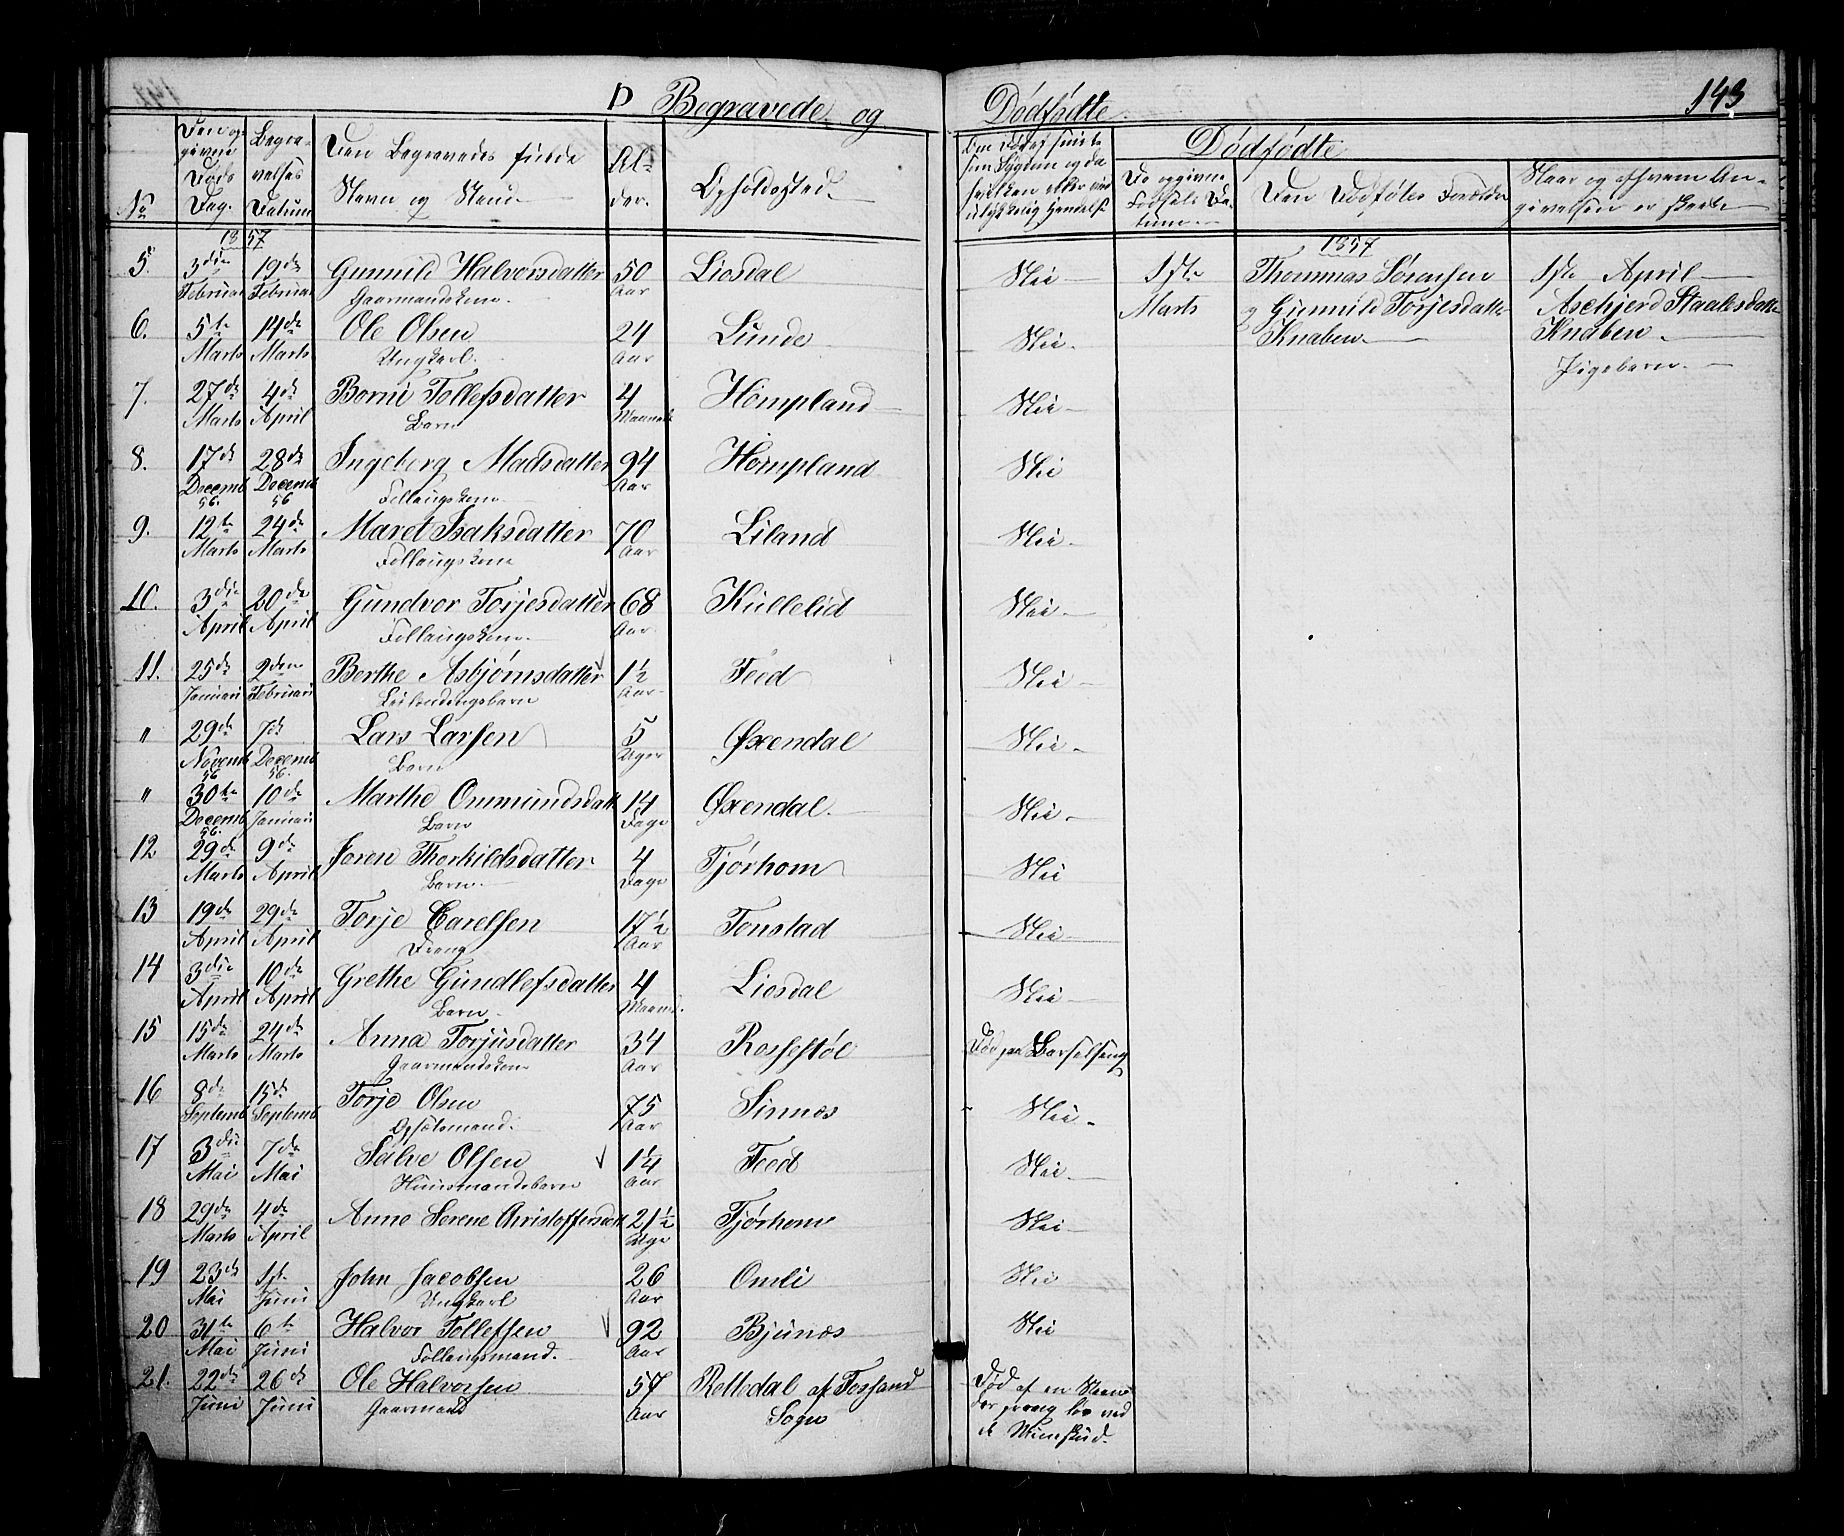 D Begravede og Dødfødte. 143
No
Den op-
givne
Døds
Dag.
Begra-
velses
Datum
Den Begravedes fulde
Navn og Stand.
Al-
der.
Opholdssted.
Dødfødte
Den Dødfødtes Forældre
Naar og af hvem An-
givelsen er skeet
1857
5. 3die Februar 19de Februar Gunnild Halvorsdatter 50 Aar Liosdal Nei
Gaarmandskone
6. 5te Marts 14de Marts Ole Olsen 24 Aar Lunde Nei.
Ungkarl.
7. 27de Marts 4de April Borni Tollefsdatter 4 Maaneder Hompland Nei
Barn
8. 17de Decemb 56. 28de Decemb 56 Ingeborg Madsdatter 94 Aar Hompland Nei
Follaugskone
9. 12te Marts 24de Marts Maret Isaksdatter 70 Aar Liland Nei
Follaugskone
10. 3die April 20de April Gundvor Torjesdatter 68 Aar Kullelid Nei
Follaugskone
11. 25de Januari 2den Februari Berthe Asbjørnsdatter 1½ Aar Feed Nei
Leilendingsbarn
" 29de Novemb 56 7de Decemb 56. Lars Larsen 5 Uger Øxendal Nei
Barn
" 30te Decemb 56. 10de Januari Marthe Onmundsdatt 14 Dage Øxendal. Nei
Barn
12 29de Marts 9de April Joren Thorkildsdatter 4 Dage Tjørhom Nei
Barn
13 19de April 29de April Torje Carelsen 17½ Aar Tonstad Nei
Dreng
14 3die April 10de April Grethe Gundlefsdatter 4 Maand. Liosdal Nei
Barn
15 15de Marts 24de Marts Anna Torjusdatter 34 Aar Rossestøl Død paa Barselseng
Gaarmandskone
16 8de Septemb 15de Septemb Torje Olsen 75 Aar Sinnes Nei
Opsætsmand.
17 3die Mai 7de Mai Salve Olsen 1¼ Aar Feed Nei
Huusmandsbarn
18 29de Marts 4de April Anne Serene Christoffersdatt 21½ Uge Tjørhom Nei
19 23de Mai 1ste Juni John Jacobsen 26 Aar Omli Nei
Ungkarl
20 31te Mai 6te Juni Halvor Tollefsen 92 Aar Bjunes Nei
Follaugsmand.
21. 22de Juni 26de Juni Ole Halvorsen 57 Aar Rettedal af Fossand
Gaarmand Sogn
Død af en
1857
1ste Marts Thommas Sørensen 1ste April
og Gunnild Torjesdatter Aschjerd Staalesdatter
Knaben. Knaben.
Pigebarn.